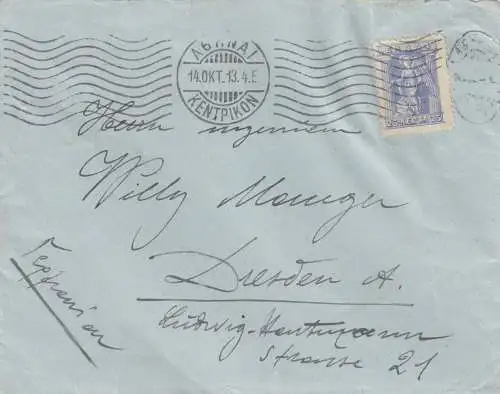 ΑΘΗΝΑΙ
14.ΟΚΤ.13.4.Ε
ΚΕΝΤΡΙΚΟΝ
Herrn ingenieur
Willy
Dresden A.
Γερμανίαν
Ludwig-Hartmann
Strasse 21